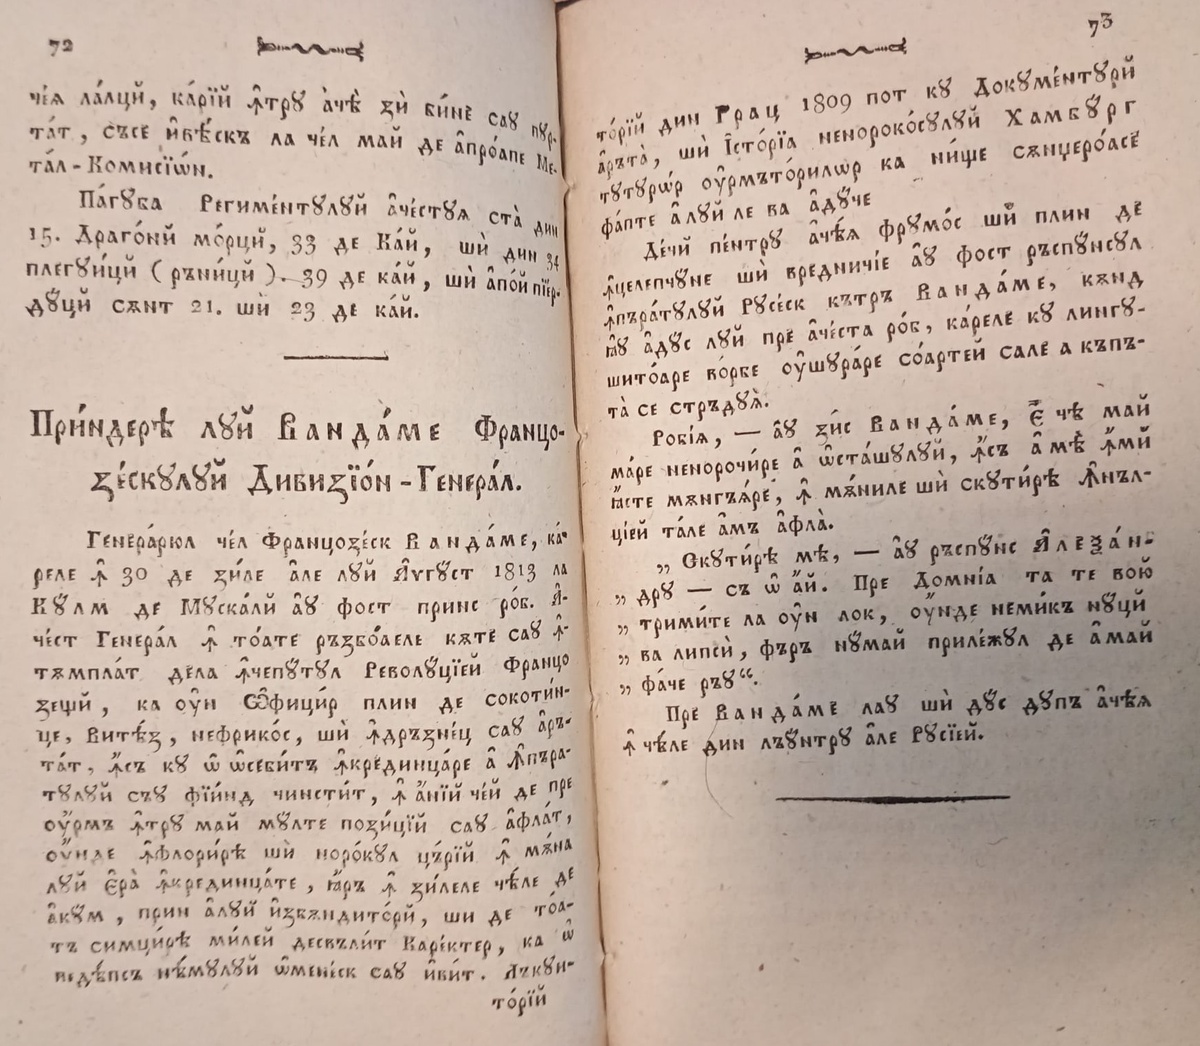 72
чѐѧ ла́лцй, ка́рїй ꙟ̂трꙋ а̀чѣ̀ зѝ би́нѐ саꙋ пꙋр-
та́т, съсе и̂вѣ́скъ ла че́л май де а̂про́апе Ме-
та́л-Комисїѡ́н.
Па́гꙋба Регимéнтꙋлꙋй а̂че́стꙋѧ ста̀ дин
15. Драго́нй мо́рцй, 33 де Ка́й, шѝ дин 34
плегꙋи́цй (ръни́цй). 39 де ка́й, шѝ а̂по́й пїер-
дꙋ́цй сѫнт 21. шѝ 23 де ка́й.
При́ндерѣ лꙋй Ванда́ме Францо-
зе́скꙋлꙋй Дивизїо́н-Генера́л.
Генера́рюл че́л Францозе́ск Ванда́ме, ка́-
реле ꙟ̂ 30 де зи́ле а̂ле лꙋй А҆́ѵгꙋст 1813 ла
Кꙋлм де Мꙋска́лй а̂ꙋ фост принс ро́б. А҆-
че́ст Генера́л ꙟ̂ то́ате ръзбо́аеле кѫте саꙋ ꙟ̂-
тѫмпла́т дела ꙟ̂чепꙋ́тꙋл Револꙋ́цїей Францо
зещй, ка оу҆н Ѡ҆фици́р плин де сокоти́н-
це, Вите́з, нефрико́с, шѝ ꙟ̂дръзне́ц саꙋ а̂ръ-
та́т, ꙟ̂съ кꙋ ѡ̂ ѡ̂себи́тъ ꙟ̂крединца́ре а̂ ꙟ̂пъра-
тꙋлꙋй съꙋ фїи́нд чинсти́т, ꙟ̂ а̂нїй че́й де пре
оу҆рмъ ꙟ̂трꙋ май мꙋлте пози́цїй саꙋ а̂фла́т,
оу҆́нде ꙟ̂флори́рѣ шѝ норо́кꙋл цъ́рїй ꙟ̂ мѫна
лꙋй є̂ра̀ ꙟ̂крединца́те, ꙗ҆ръ ꙟ̂ зи́леле че́ле де
а̂кꙋ́м, прин а̂лꙋй и̂звѫндито́рй, ши де то́а-
тъ симци́рѣ ми́лей десвъли́т Каре́ктер, ка ѡ̂
ведѣ́псъ нѣ́мꙋлꙋй ѡ̂мене́ск саꙋ и̂ви́т. Лъкꙋи-
то́рїй
73
то́рїй дин Грац 1809 пот кꙋ Докꙋме́нтꙋрй
а̂ръта̀, шѝ Їсто́рїа ненороко́сꙋлꙋй Хамбꙋ́рг
тꙋтꙋрѡ́р оу҆рмъто́рилѡр ка ни́ще сѫнџеро́асе
фа́пте а̂лꙋй ле ва а̂дꙋ́че
Де́чй пе́нтрꙋ а̂че́ѧ фрꙋмо́с шѝ плин де
ꙟ̂целепчꙋне шѝ вредничі́е а̂ꙋ фост ръспꙋ́нсꙋл
ꙟ̂пъра́тꙋлꙋй Рꙋсе́ск кътръ Ванда́ме, кѫнд
ꙗ҆ꙋ а̂дꙋ́с лꙋй пре а̂че́ста ро́б, ка́реле кꙋ лингꙋ-
шито́аре во́рбе оу҆шꙋра́ре со́артей сале а къпъ-
та̀ се стръдꙋѧ̀.
Робі́ѧ, — а̂ꙋ зи́с Ванда́ме, є̂ чѣ май
ма́ре ненорочи́ре а̂ ѡ̂ста́шꙋлꙋй, ꙟ̂съ а̂ мѣ̀ ꙟ̂мй
ꙗ҆сте мѫнгѫѧ́ре, ꙟ̂ мѫ́ниле шѝ скꙋти́рѣ ꙟ̂нъл-
ці́ей та́ле а̂мъ а̂фла̀.
„ Скꙋти́рѣ мѣ̀, — а̂ꙋ ръспꙋнс А̂леѯа́н-
„ дрꙋ — съ ѡ̂ а̂й. Пре Домні́а та те вою
„ трими́те ла оу҆н лок, оу҆́нде неми́къ нꙋцй
„ ва липсѝ, фъръ нꙋ́май приле́жꙋл де а̂май
„ фа́че ръꙋ“.
Пре Ванда́ме лаꙋ шѝ дꙋ́с дꙋпъ а̂че́ѧ
ꙟ̂ че́ле дин лъꙋнтрꙋ а̂ле Рꙋсі́ей.